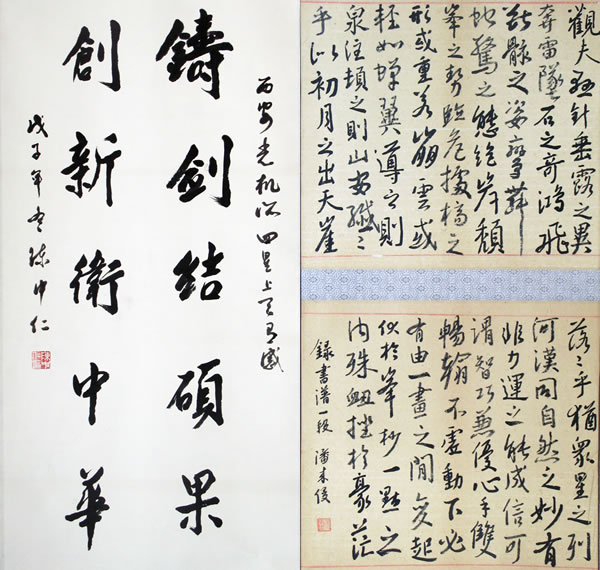 西安光机所四星上天有感
鑄劍結碩果
創新衛中華
戊子年冬
觀夫懸針垂露之異
奔雷墜石之奇鴻飛
獸駭之姿鸞舞
蛇驚之態絕岸頹
峯之勢臨危據槁之
形或重若崩雲或
輕如蟬翼導之則
泉注頓之則山安纖〻
乎似初月之出天崖
落〻乎猶眾星之列
河漢同自然之妙有
非力運之能成信可
謂智巧兼優心手雙
暢翰不虛動下必
有由一畫之間變起
伏於峯杪一點之
內殊衄挫於豪芒
錄書譜一段 潘來俊